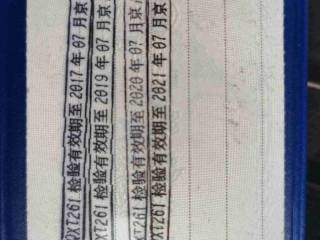 QXT261检验有效期至2017年07月京
QXT261检验有效期至2019年07月京
QXT261检验有效期至2020年07月京
QXT261检验有效期至2021年07月京